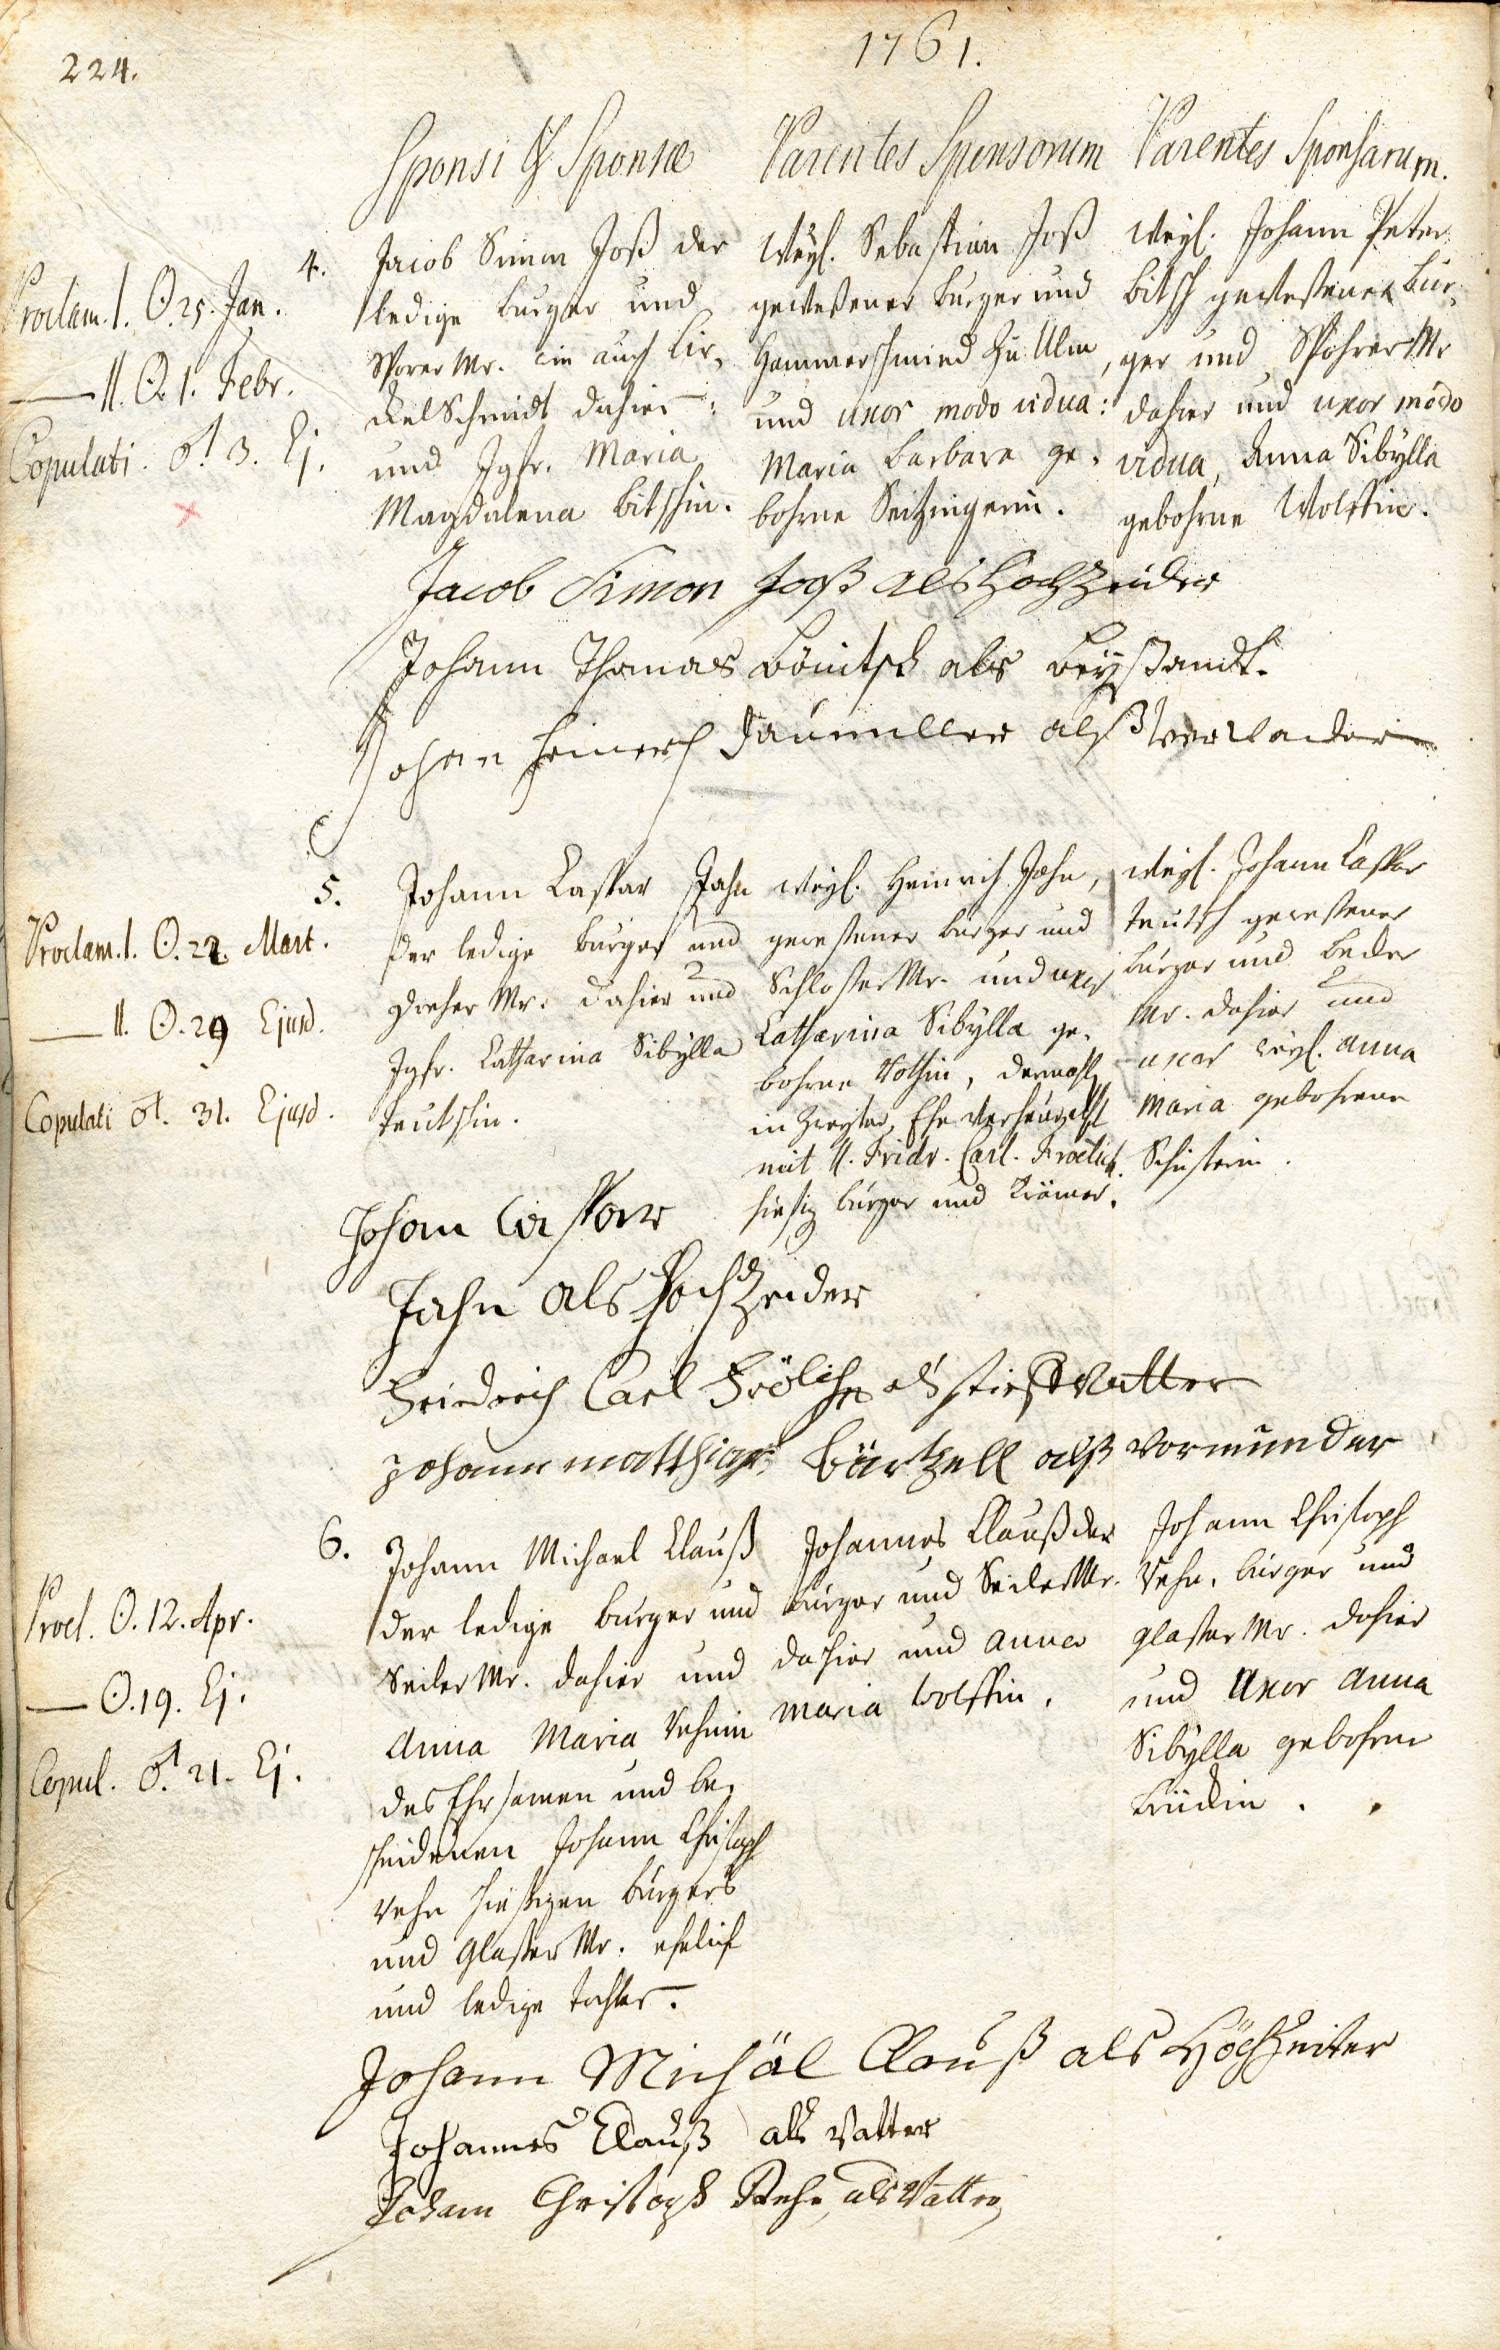 224.
1761.
Sponsi & Sponsæ
Parentes Sponsorum
Parentes Sponsarum.
Proclam. I. ☉. 25. Jan.
— II. ☉. 1. Febr.
Copulati. ♂ 3. Ej.
4.
Jacob Simon Joß der
ledige burger und
Sporer Mr. wie auch Zir,
ckelSchmidt dahier:
und Jgfr. Maria
Magdalena bitschin.
weyl. Sebastian Joß
geweßener burger und
Hammerschmied zu Ulm,
und uxor modo vidua:
Maria barbara ge,
bohrne Seitzingerin.
weyl. Johann Peter
bitsch geweßener bur,
ger und Spohrer Mr
dahier und uxor modo
vidua, Anna Sibylla
gebohrne Wolffin.
Jacob Simon Joß als Hochzeider
Johann Thomas als beystandt.
Johan Heinrich Daumiller alß
5.
Proclam. I. ☉. 22. Mart.
— II. ☉. 29 Ejusd.
Copulati ♂. 31. Ejusd.
Johann Caspar Jahn
der ledige burger und
Dreher Mr. dahier und
Jgfr. Catharina Sibylla
teutschin.
weyl. Heinrich Jahn,
geweßener burger und
Schloßer Mr. und uxor
Catharina Sibylla ge,
bohrne Nothin, dermahl
in zweyter Ehe verheurathet
mit H. Fridr. Carl. Froelich
hießig burger und Krämer.
weyl. Johann Caspar
teutsch geweßener
burger und becker
Mr. dahier und
uxor weyl. Anna
Maria gebohrene
Schusterin.
Johann Caspar
Jahn als Hochzeider
Friedrich Carl Frölich als stieffVatter
Johann Matthias Bärtzell alß Vormunder
6.
Procl. ☉. 12. Apr.
— ☉. 19. Ej.
Copul. ♂. 21. Ej.
Johann Michael Clauß
der ledige burger und
Seiler Mr. dahier und
Anna Maria Rehnin
des Ehrsamen und be,
scheidenen Johann Christoph
Rehn hießigen burgers
und Glaßer Mr. ehelich
und ledige tochter.
Johannes Clauß der
burger und Seiler Mr.
dahier und Anna
Maria Wolffin.
Johann Christoph
Rehn, burger und
glaßer Mr. dahier
und Uxor Anna
Sibylla gebohrne
Johann Michäl Clauß als Hochzeiter
Johannes Clauß als Vatter
Johann Christoph Rehn als Vatter